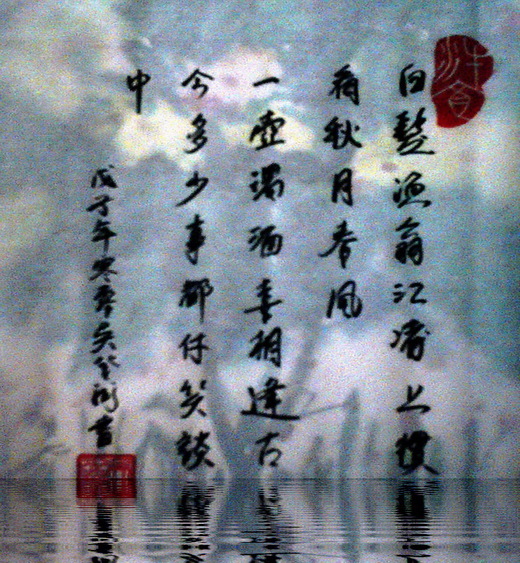 白髮漁翁江渚上慣
看秋月春風
一壺濁酒喜相逢古
今多少事都付笑談
中
戊子年寒冬吳
書